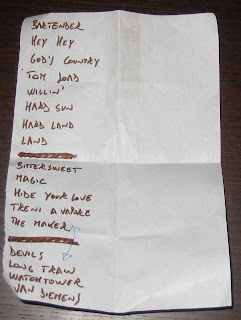 BARTENDER
HEY HEY
GOD'S COUNTRY
TOM JOAD
WILLIN'
HARD SUN
HARD LAND
LAND
BITTERSWEET
MAGIC
HIDE YOUR LOVE
TRENI A VAPORE
THE MAKER
DEVILS
LONG TRAIN
WATCHTOWER
VAN DIEMENS